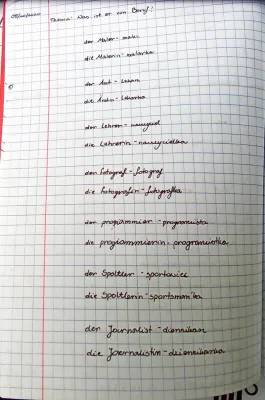 Thema: Was ist er von Beruf?
der Maler - malarz
die Malerin - malarka
der Arzt - lekarz
die Ärztin - lekarka
der Lehrer - nauczyciel
die Lehrerin - nauczycielka
der Fotograf - fotograf
die Fotografin - fotografka
der programmier - programista
die programmierin - programistka
der Sportler - sportowiec
die Sportlerin - sportsmenka
der Journalist - dziennikarz
die Journalistin - dziennikarka